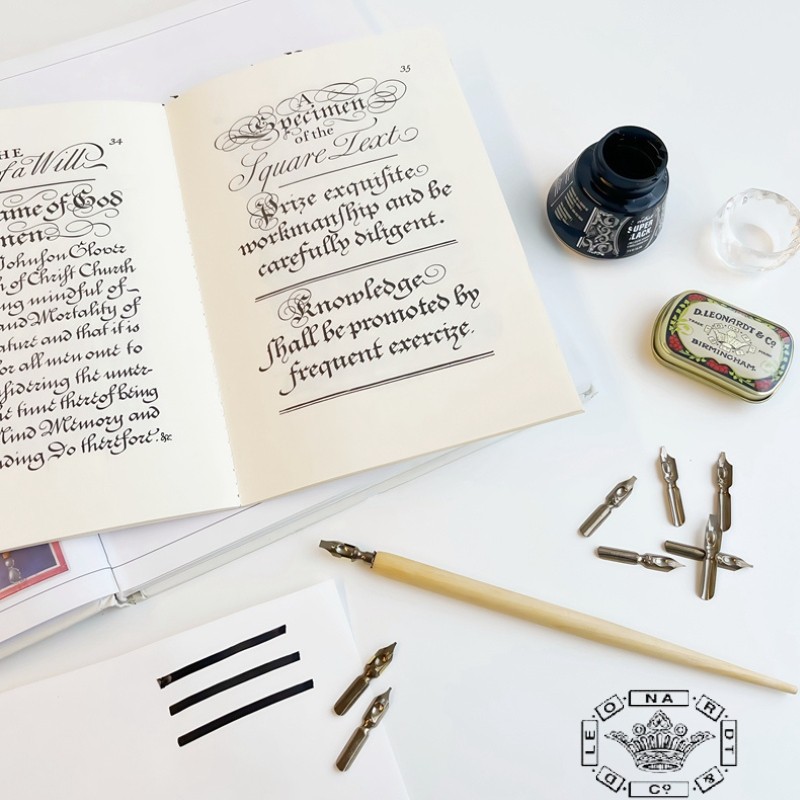 34
THE
of a Will
Name of God
men
Johnſon Glover
h of Chriſt Church
ng mindful of
and Mortality of
ature and that it is
for all men ome to
nſidering the uncer-
e time thereof being
Mind Memory and
nding Do therefore. &c
35
A
Specimen
of the
Square Text
Prize exquiſite
workmanſhip and be
carefully diligent.
Knowledge
ſhall be promoted by
frequent exercize.
SUPER
BLACK
D. LEONARDT & Co.
TRADE MARK
BIRMINGHAM
D LEONARDT & Co